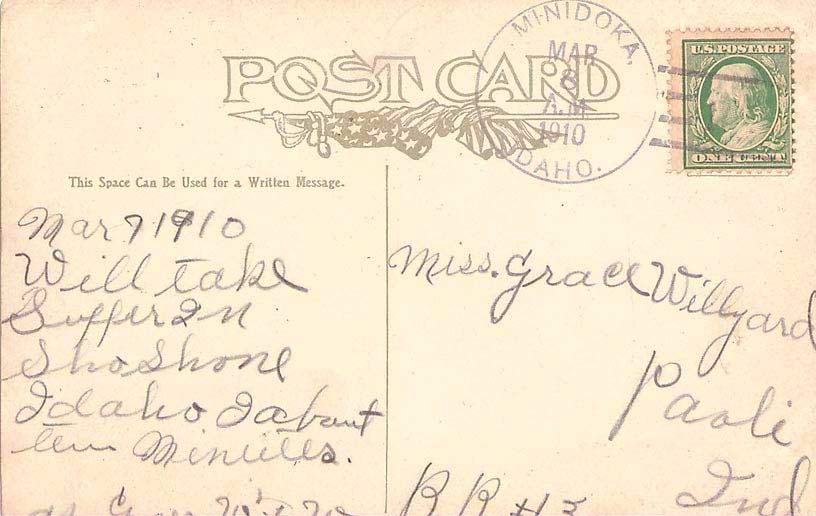 POST CARD
MINIDOKA,
MAR
8
A.M.
1910
IDAHO.
U.S. POSTAGE
ONE CENT
This Space Can Be Used for a Written Message.
Mar 7 1910
Will take
Supper In
ShoShone
Idaho I about
ten Minutes.
Miss. Grace Willyard
Paoli
Ind
RR #3